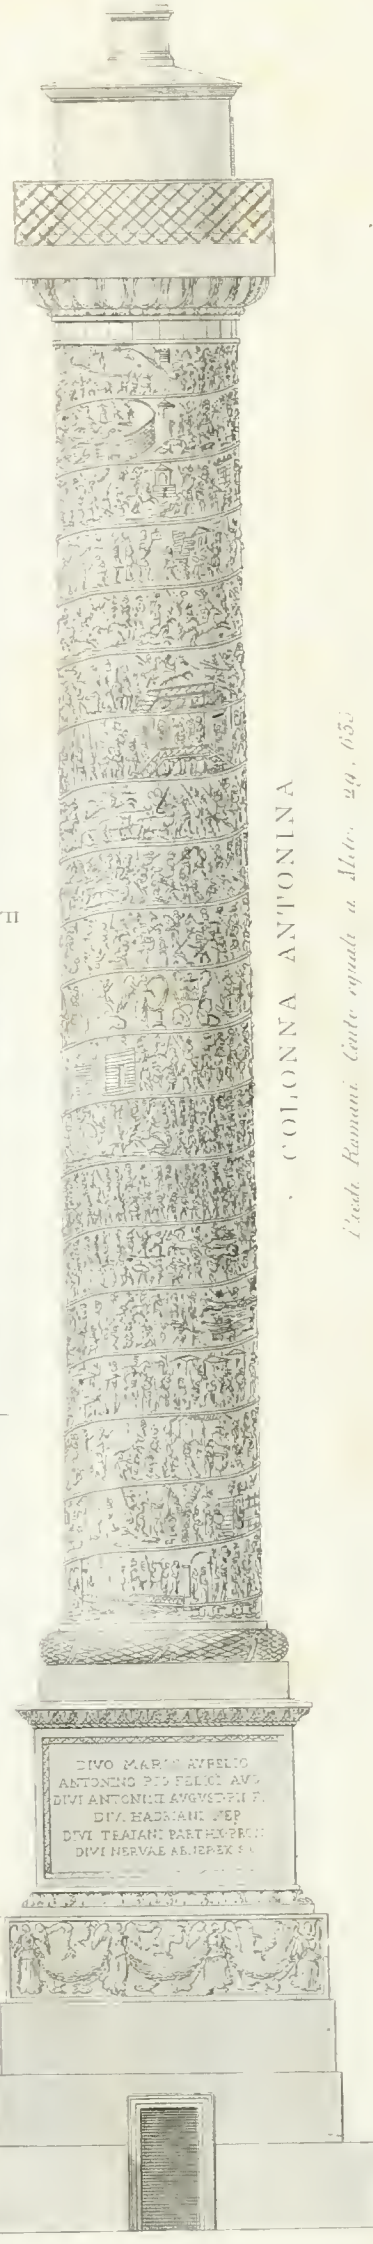 VII
COLONNA ANTONINA
Piedi Romani Cento eguali a Metr. 29,
DIVO MARCO AVRELIO
ANTONINO PIO FELICI AVG
DIVI ANTONINI AVGVST PII F.
DIVI HADRIANI NEP
DIVI TRAIANI PARTH PRON
DIVI NERVAE ABNEP EX S C